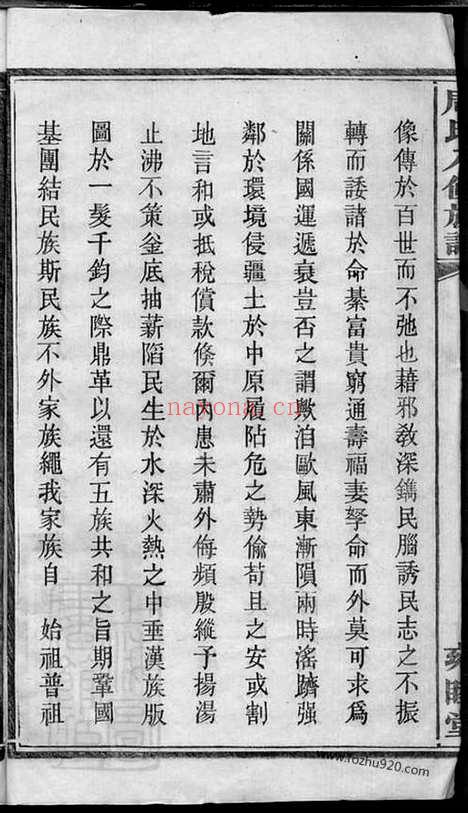 像傳於百世而不弛也藉邪敎深鐫民腦誘民志之不振
轉而諉諸於命綦富貴窮通壽福妻孥命而外莫可求爲
關係國運遞衰豈否之謂歟洎歐風東漸隕兩時滛躋强
鄰於環境侵疆土於中原履阽危之勢偸苟且之安或割
地言和或抵稅償款倏爾內患未肅外侮頻殷縱予揚湯
止沸不策釜底抽薪陷民生於水深火熱之中垂漢族版
圖於一髮千鈞之際鼎革以還有五族共和之旨期鞏國
基團結民族斯民族不外家族繩我家族自 始祖普祖
周氏八修族譜
敦睦堂
naxona.cn
www.fozhu920.com